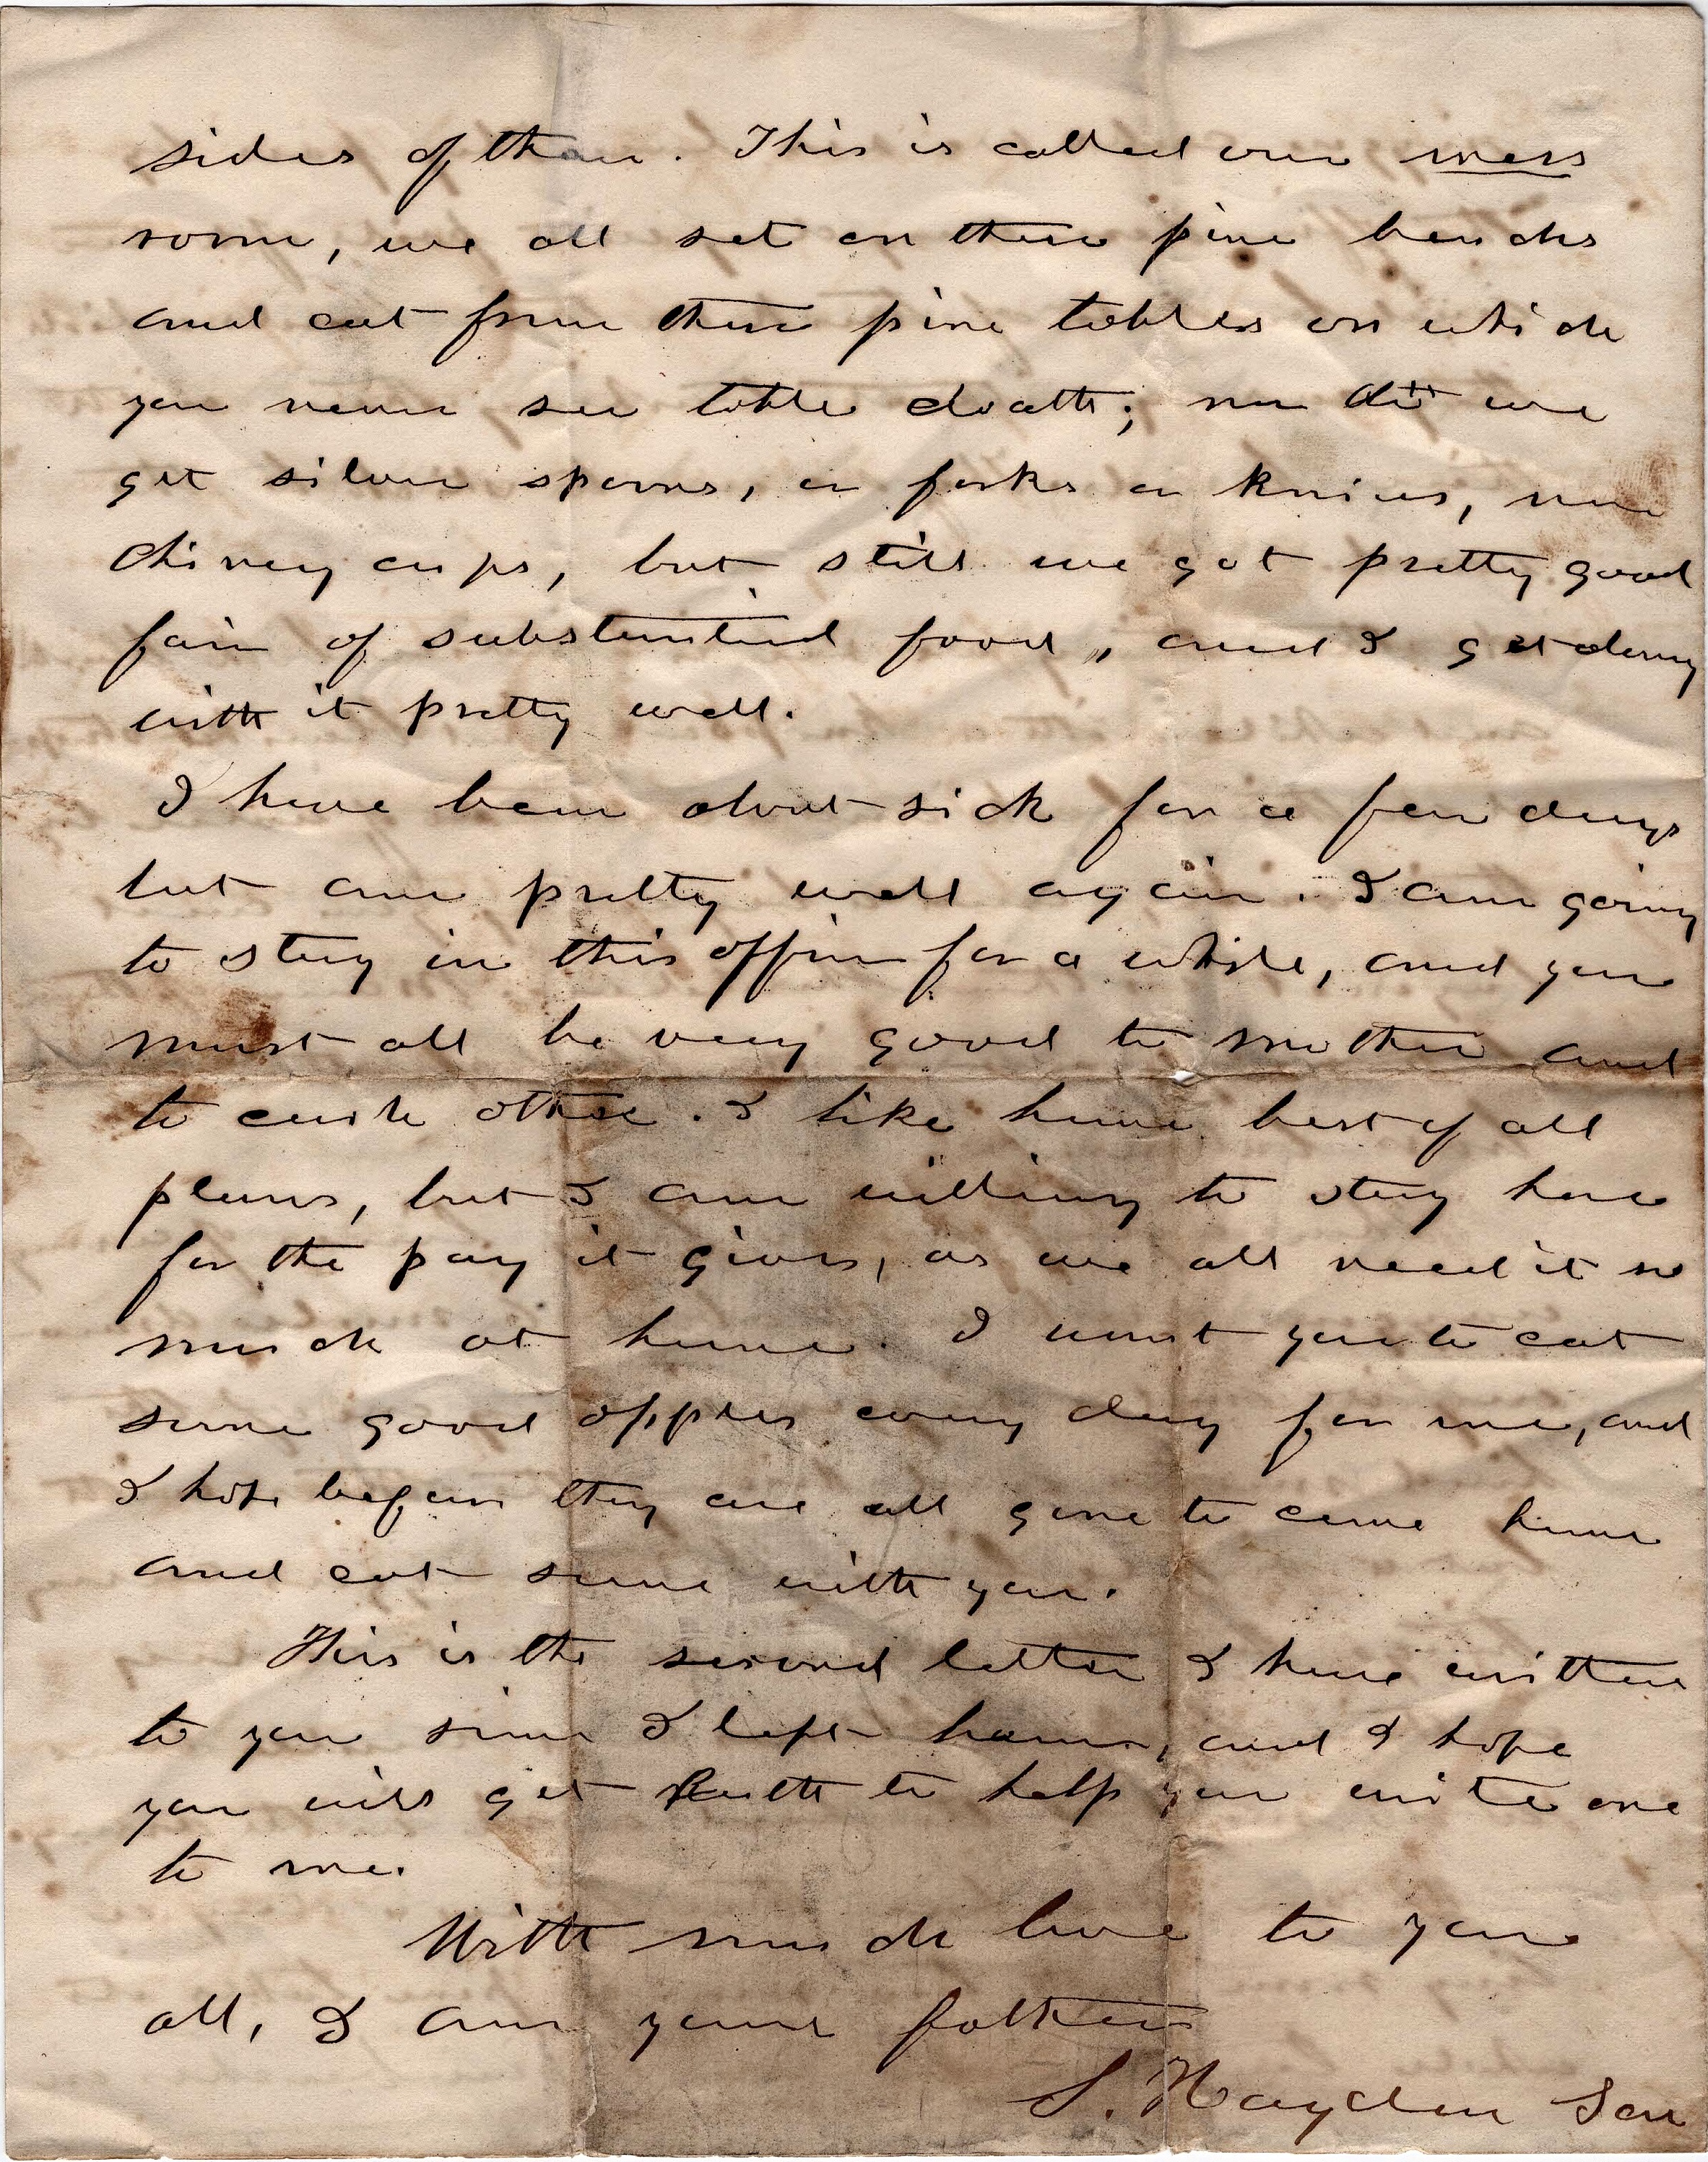 sides of them. This is called our mess
room, we all set on these pine benches
and eat from these pine tables on which
you never see table cloath; nor do we
get silver spoons, or forks or knives, nor
chiney cups, but still we get pretty good
fair of substantial food, and I get along
with it pretty well.
I have been about sick for a few days
but am pretty well again. I am going
to stay in this office for a while, and you
must all be very good to mother and
to each other. I like home best of all
places, but I am willing to stay here
for the pay it gives, as we all need it so
much at home. I want you to eat
some good apples every day for me, and
I hope before they are all gone to come home
and eat some with you.
This is the second letter I have written
to you since I left home, and I hope
you will get Ruth to help you write one
to me.
With much love to you
all, I am your father
S. Hayden